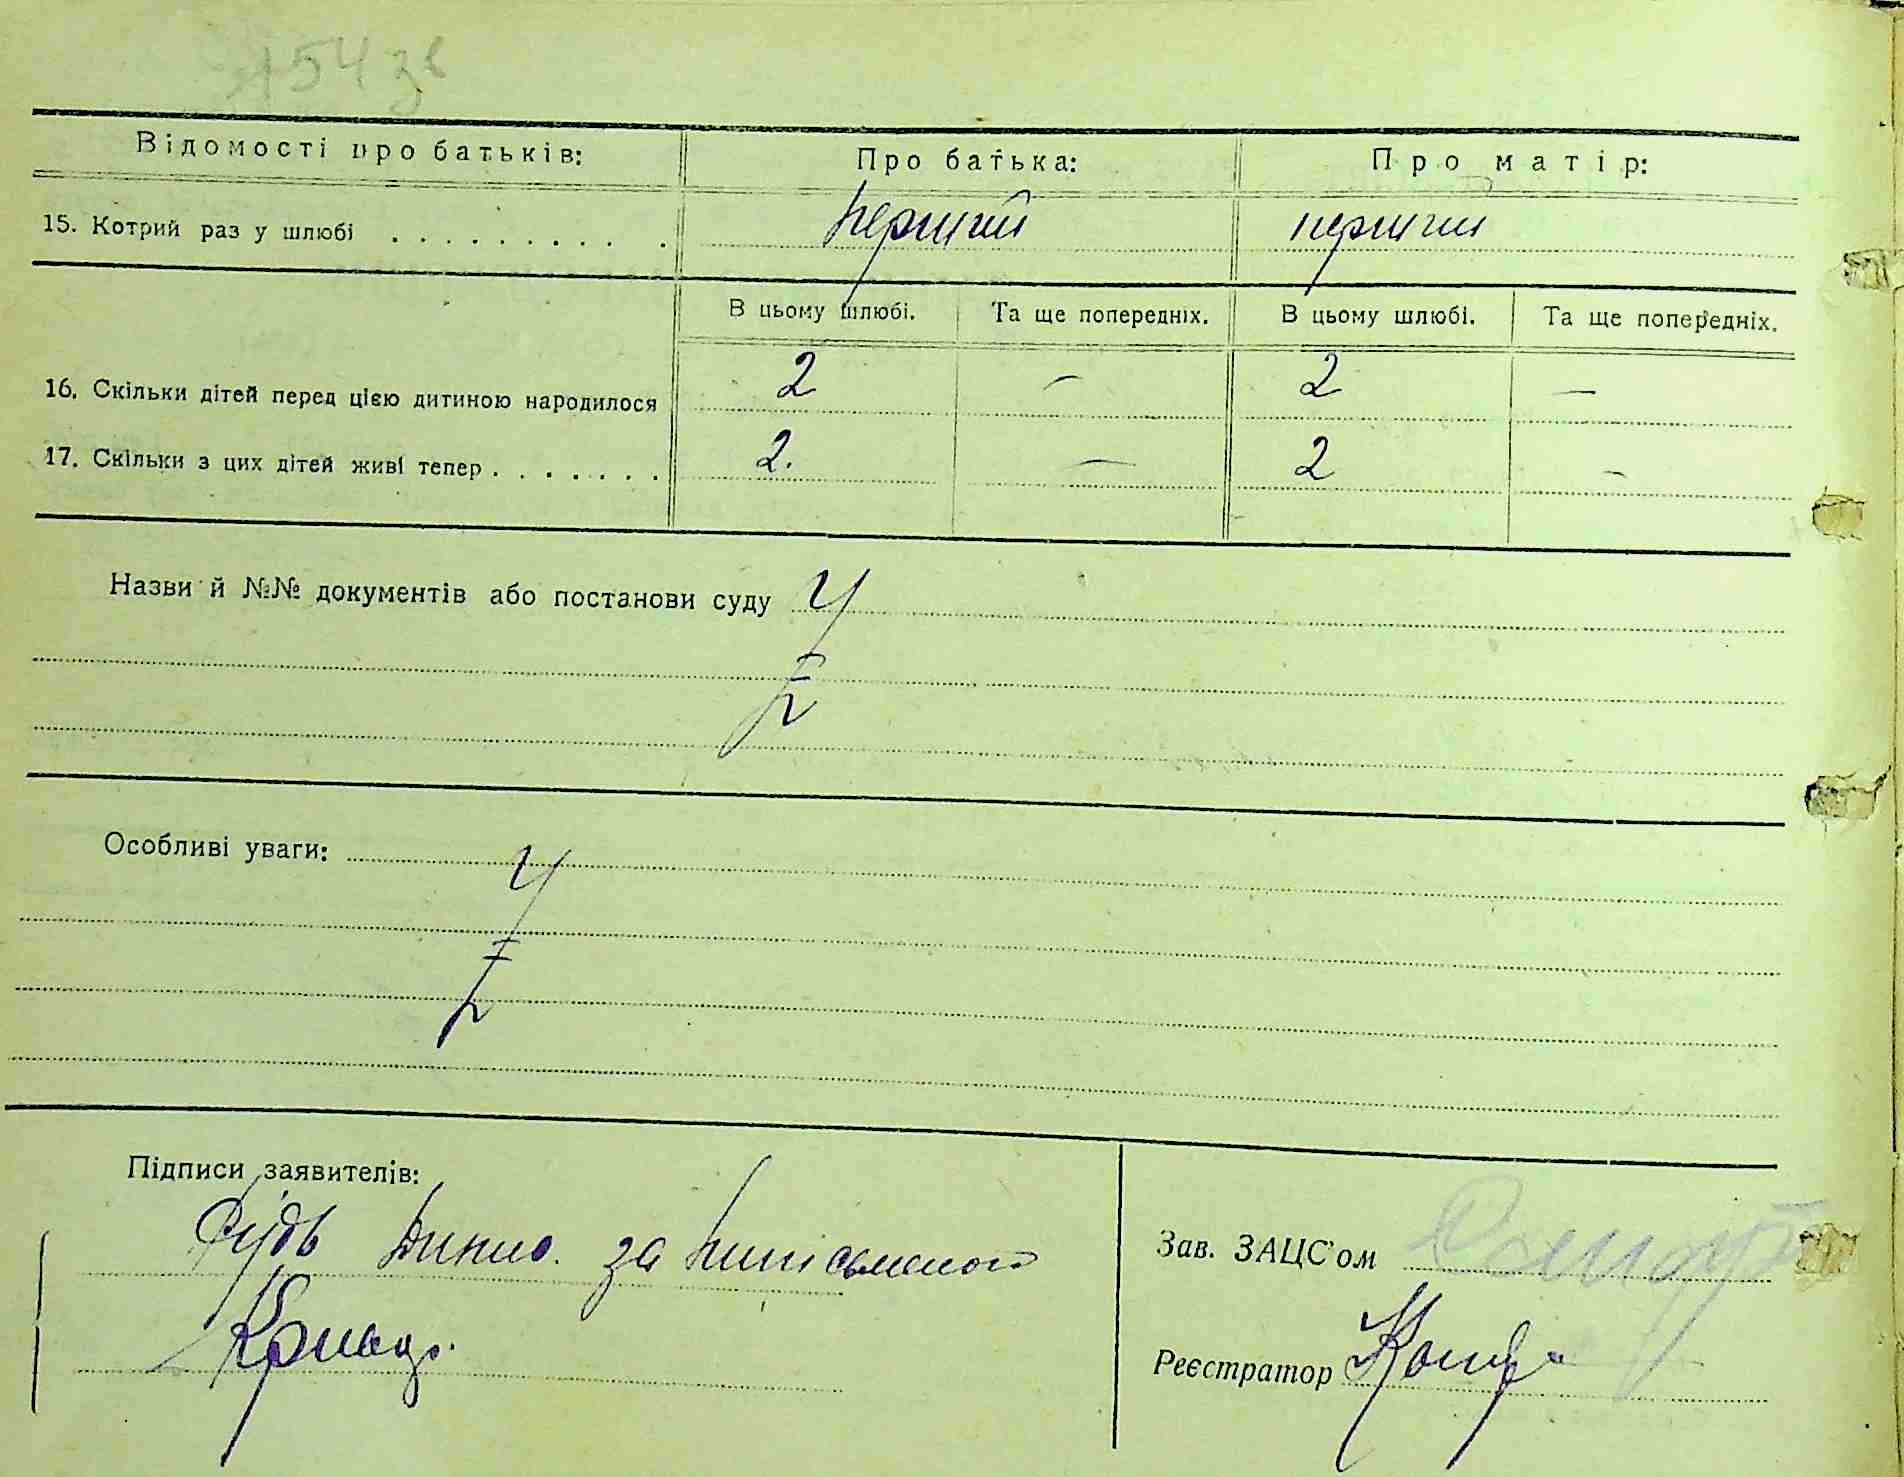 154 зв
Відомості про батьків: Про батька: Про матір:
15. Котрий раз у шлюбі . . . . . . . . . . перший перший
В цьому шлюбі. Та ще попередніх. В цьому шлюбі. Та ще попередніх.
16. Скільки дітей перед цією дитиною народилося 2 — 2 —
17. Скільки з цих дітей живі тепер . . . . . . . 2. — 2 —
Назви й №№ документів або постанови суду
Особливі уваги:
Підписи заявителів:
за
Зав. ЗАЦС'ом
Реєстратор